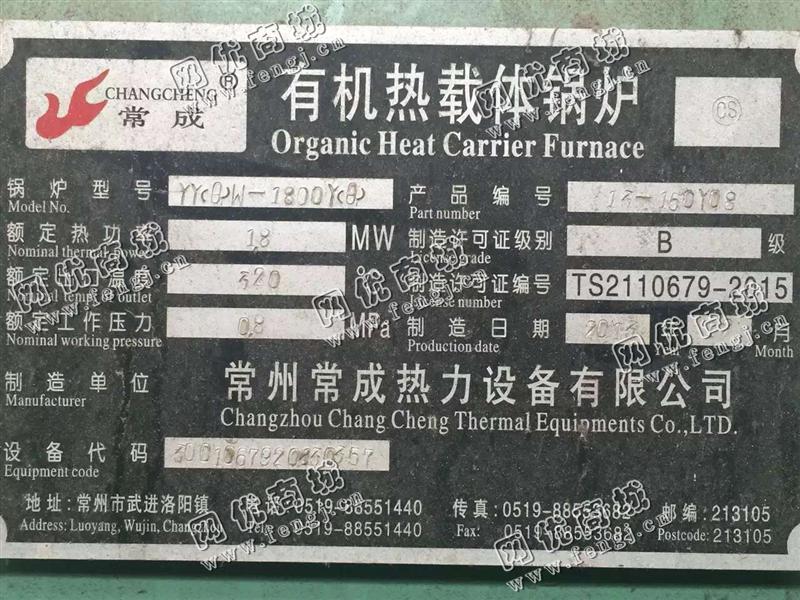 CHANGCHENG®
常成
有机热载体锅炉
Organic Heat Carrier Furnace
CS
锅炉型号
Model No.
产品编号
Part number
额定热功率 1.8 MW
Nominal thermal power
制造许可证级别 B 级
License grade
额定出口温度 320
Nominal temp of outlet
制造许可证编号 TS2110679-2015
License number
额定工作压力 0.8 MPa
Nominal working pressure
制造日期 2013 年 月
Production date Year Month
制造单位 常州常成热力设备有限公司
Manufacturer Changzhou Chang Cheng Thermal Equipments Co.,LTD.
设备代码
Equipment code
地址:常州市武进洛阳镇 电话:0519-88551440 传真:0519-88553682 邮编:213105
Address: Luoyang, Wujin, Changzhou Tel: 0519-88551440 Fax: 0519-88553682 Postcode: 213105
网优商城
www.fengj.cn